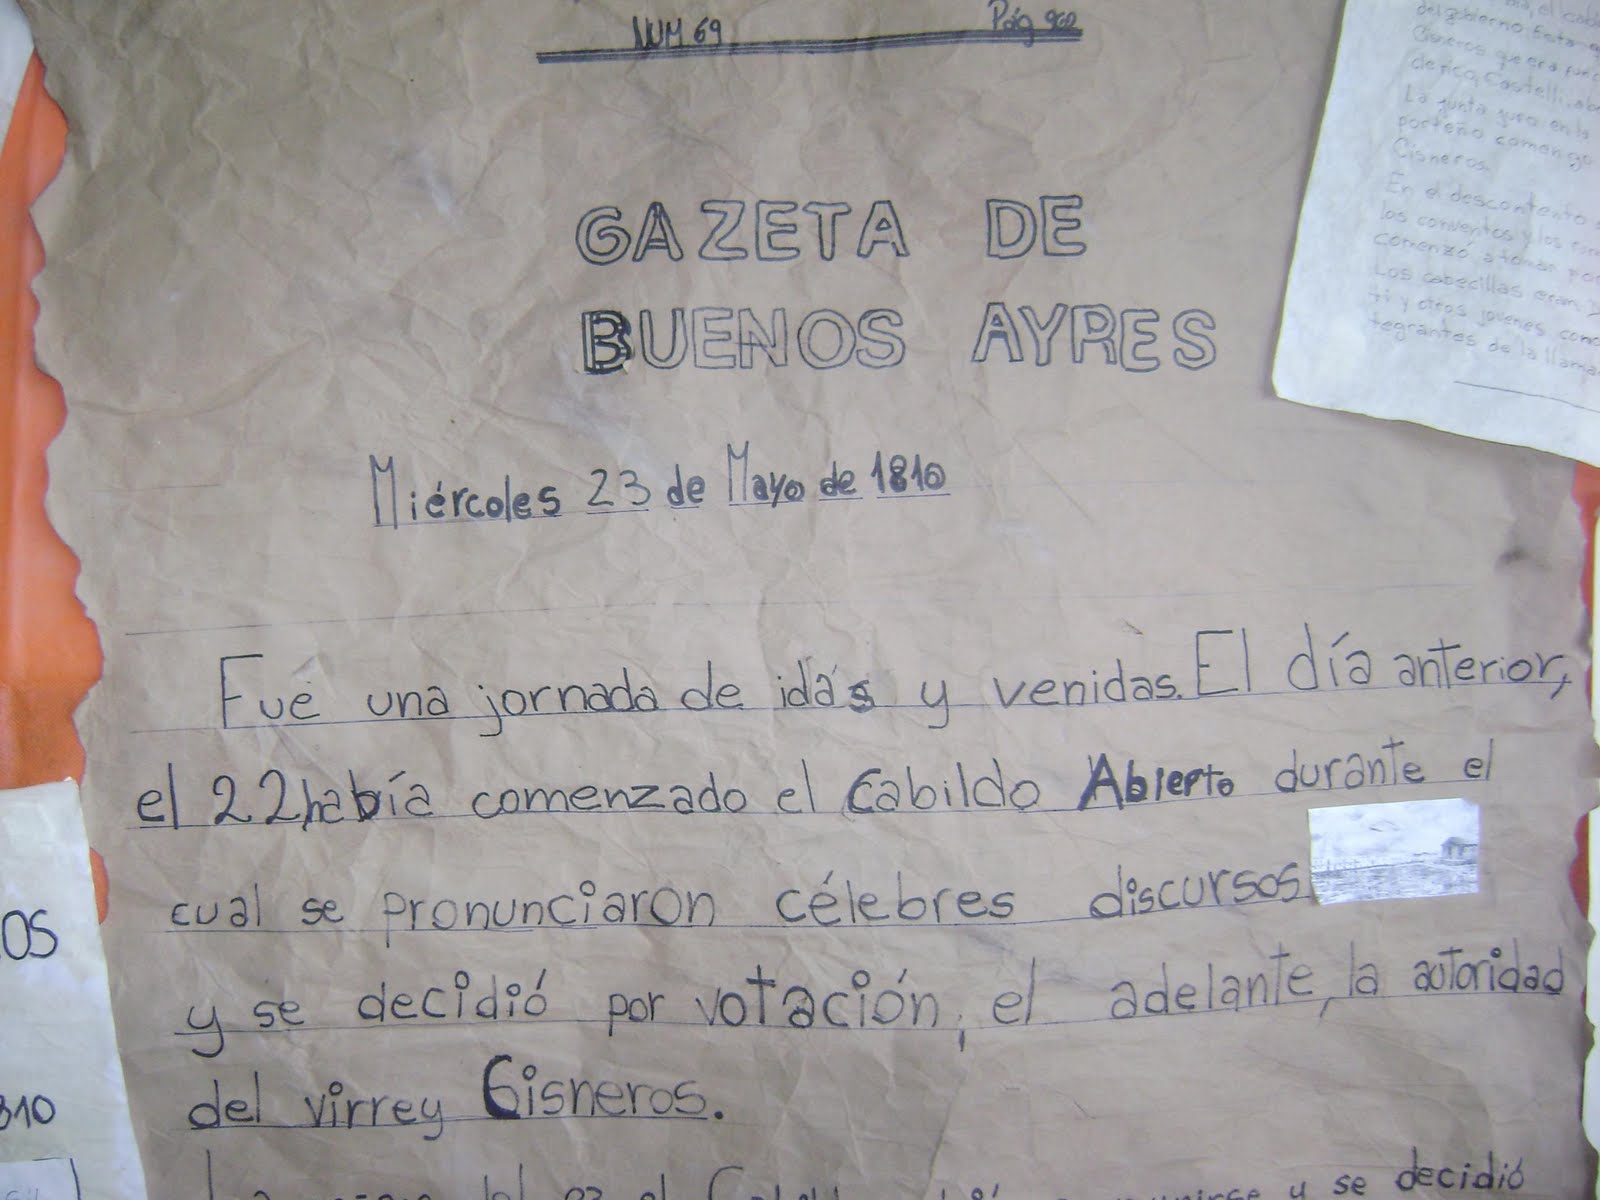 NUM 69 Pág 962
GAZETA DE
BUENOS AYRES
Miércoles 23 de Mayo de 1810
Fué una jornada de idas y venidas. El día anterior,
el 22 había comenzado el Cabildo Abierto durante el
cual se pronunciaron célebres discursos
y se decidió por votación, el adelante, la autoridad
del virrey Cisneros.
y se decidió
del gobierno. Esta
Cisneros que era
Castelli
La junta juro en la
porteño
Cisneros.
En el descontento
los conventos y los
comenzó a tomar
Los cabecillas eran
y otros jovenes como
tegrantes de la
OS
810